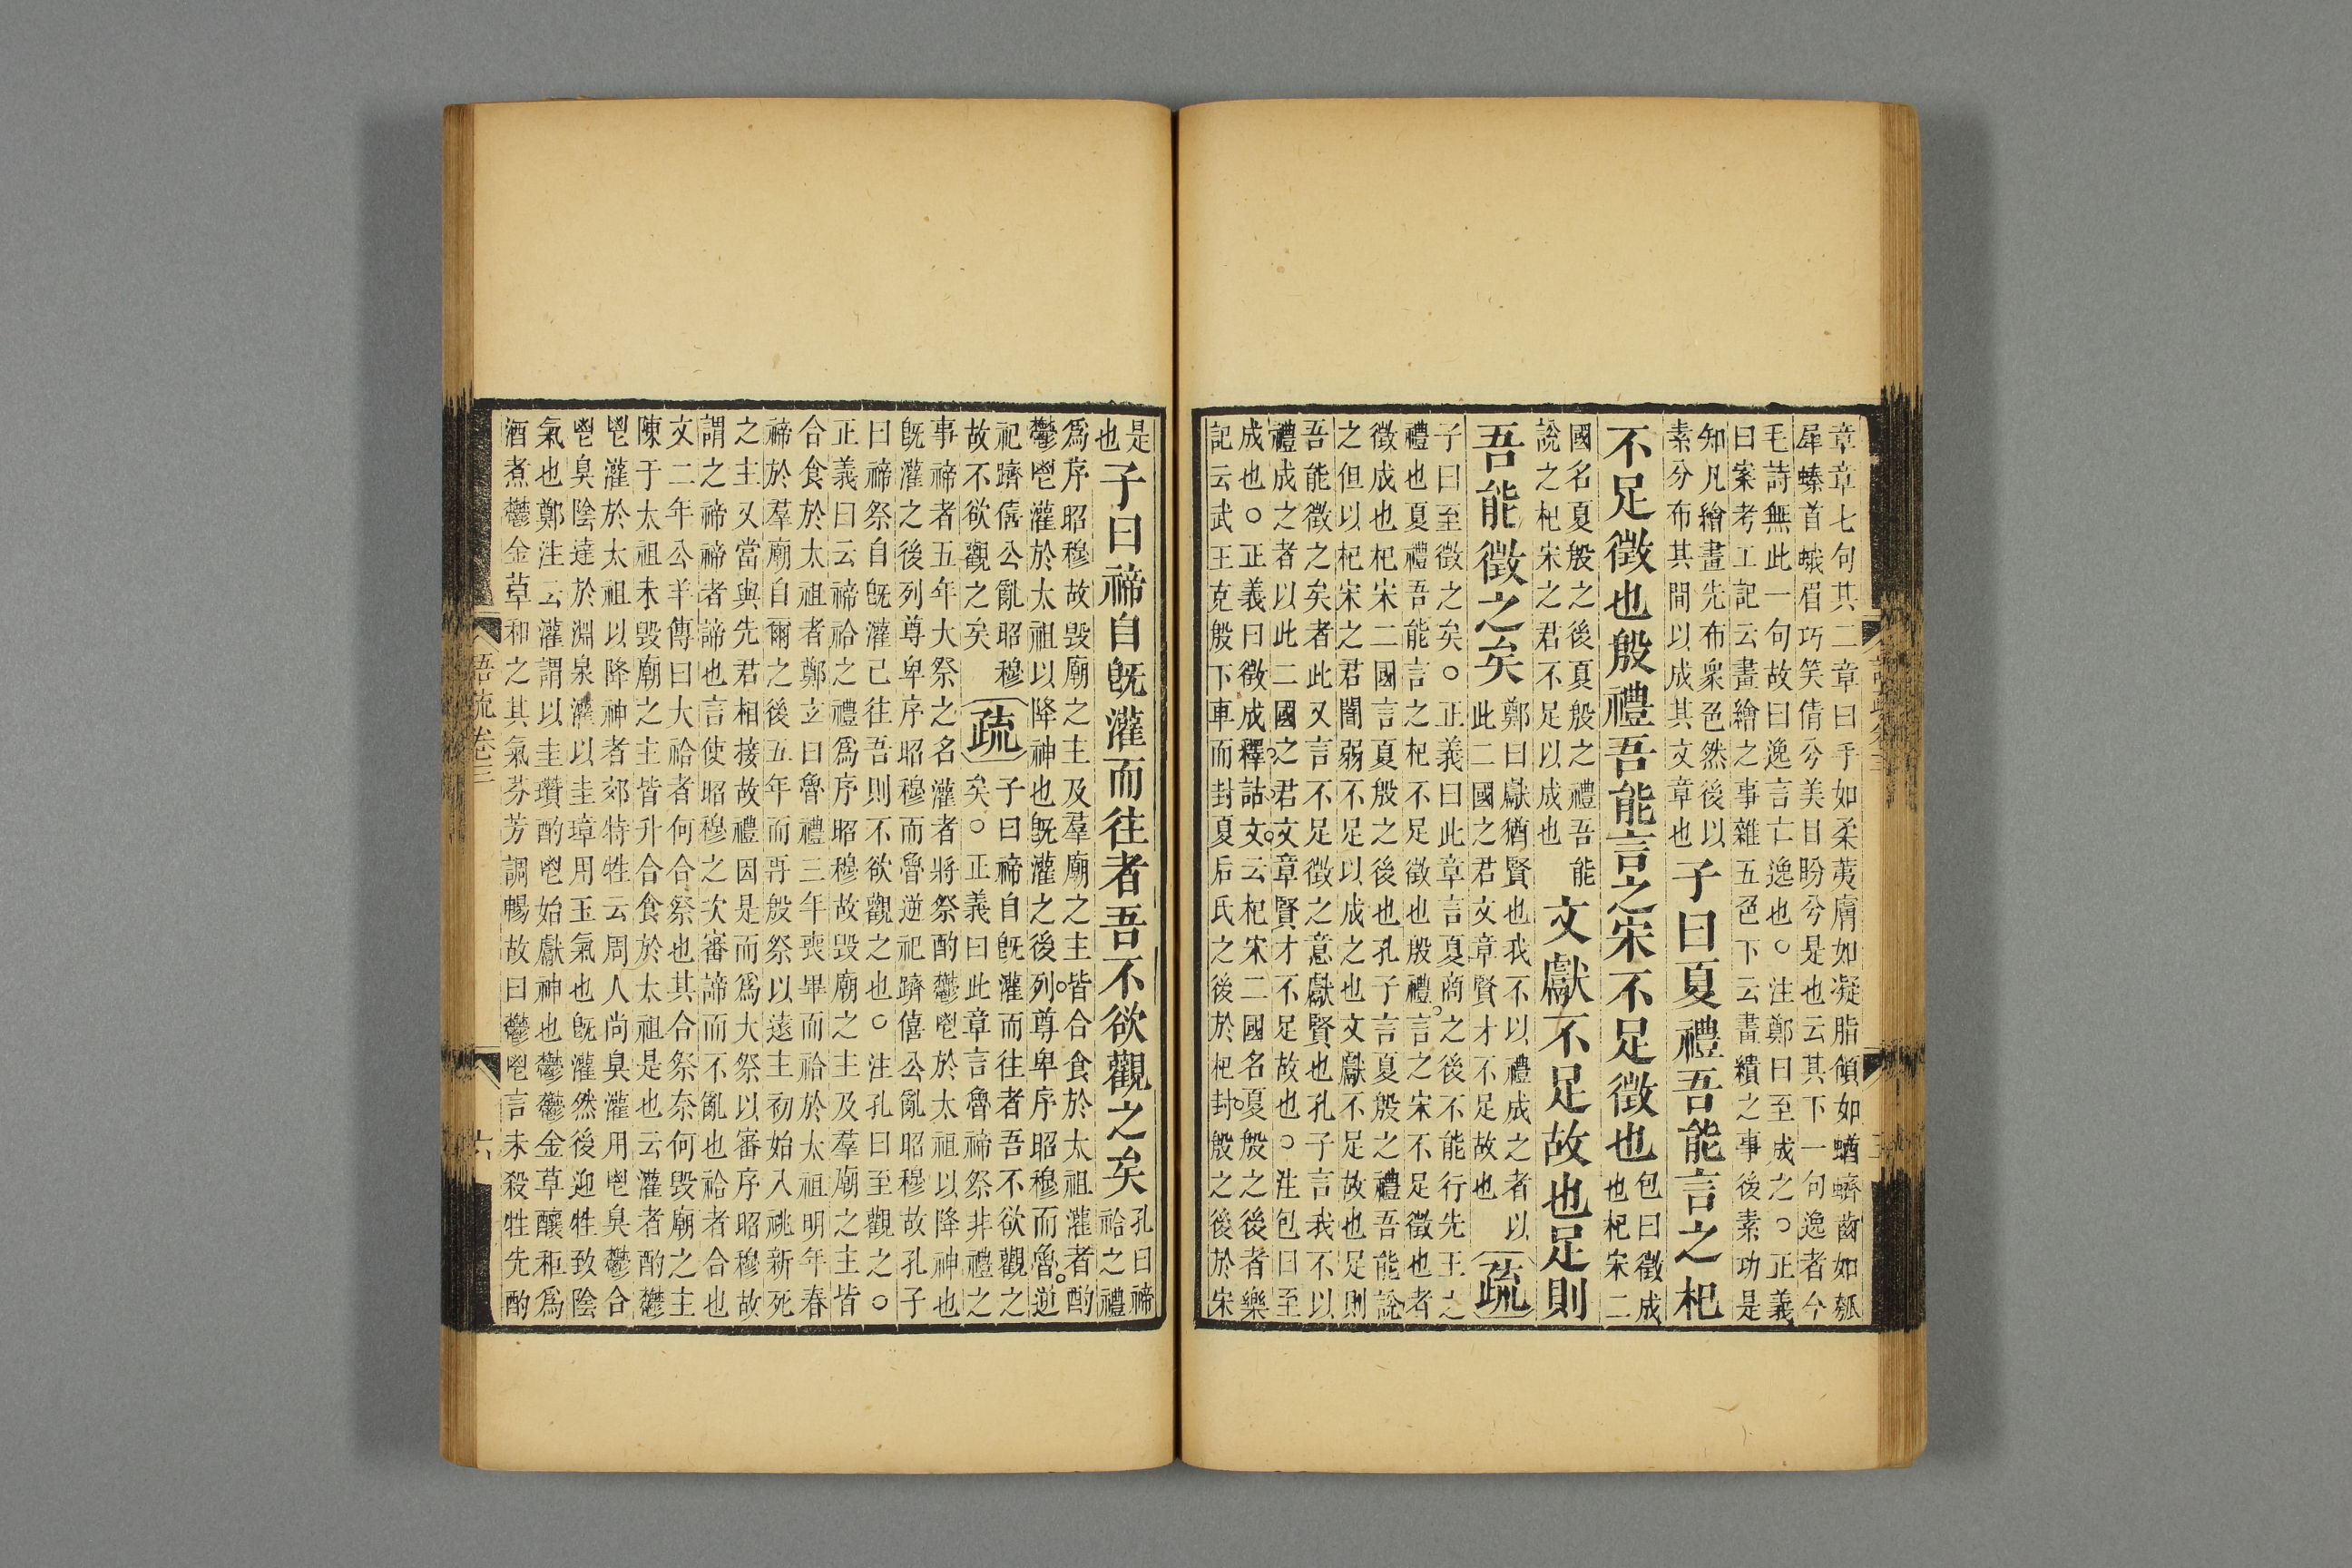 章章七句其二章曰手如柔荑膚如凝脂領如蝤蠐齒如瓠
犀螓首蛾眉巧笑倩兮美目盼兮是也云其下一句逸者今
毛詩無此一句故曰逸言亡逸也○注鄭曰至成之○正義
曰案考工記云畫繪之事雜五色下云畫繢之事後素功是
知凡繪畫先布衆色然後以
素分布其間以成其文章也
子曰夏禮吾能言之杞
不足徵也殷禮吾能言之宋不足徵也
包曰徵成
也杞宋二
國名夏殷之後夏殷之禮吾能
說之杞宋之君不足以成也
文獻不足故也足則
吾能徵之矣
鄭曰獻猶賢也我不以禮成之者以
此二國之君文章賢才不足故也
疏
子曰至徵之矣○正義曰此章言夏商之後不能行先王之
禮也夏禮吾能言之杞不足徵也殷禮言之宋不足徵也者
徵成也杞宋二國言夏殷之後也孔子言夏殷之禮吾能說
之但以杞宋之君闇弱不足以成之也文獻不足故也足則
吾能徵之矣者此又言不足徵之意獻賢也孔子言我不以
禮成之者以此二國之君文章賢才不足故也○注包曰至
成也○正義曰徵成釋詁文云杞宋二國名夏殷之後者樂
記云武王克殷下車而封夏后氏之後於杞封殷之後於宋
是
也
子曰禘自旣灌而往者吾不欲觀之矣
孔曰禘
祫之禮
爲序昭穆故毀廟之主及羣廟之主皆合食於太祖灌者酌
鬱鬯灌於太祖以降神也旣灌之後列尊卑序昭穆而魯逆
祀躋僖公亂昭穆
故不欲觀之矣
疏
子曰禘自旣灌而往者吾不欲觀之
矣○正義曰此章言魯禘祭非禮之
事禘者五年大祭之名灌者將祭酌鬱鬯於太祖以降神也
旣灌之後列尊卑序昭穆而魯逆祀躋僖公亂昭穆故孔子
曰禘祭自旣灌已往吾則不欲觀之也○注孔曰至觀之○
正義曰云禘祫之禮爲序昭穆故毀廟之主及羣廟之主皆
合食於太祖者鄭立曰魯禮三年喪畢而祫於太祖明年春
禘於羣廟自爾之後五年而再殷祭以遠主初始入祧新死
之主又當與先君相接故禮因是而爲大祭以審序昭穆故
謂之禘禘者諦也言使昭穆之次審諦而不亂也祫者合也
文二年公羊傳曰大祫者何合祭也其合祭奈何毀廟之主
陳于太祖未毀廟之主皆升合食於太祖是也云灌者酌鬱
鬯灌於太祖以降神者郊特牲云周人尚臭灌用鬯臭鬱合
鬯臭陰達於淵泉灌以圭璋用玉氣也旣灌然後迎牲致陰
氣也鄭注云灌謂以圭瓚酌鬯始獻神也鬱鬱金草釀秬爲
酒煮鬱金草和之其氣芬芳調暢故曰鬱鬯言未殺牲先酌
語疏卷三
六